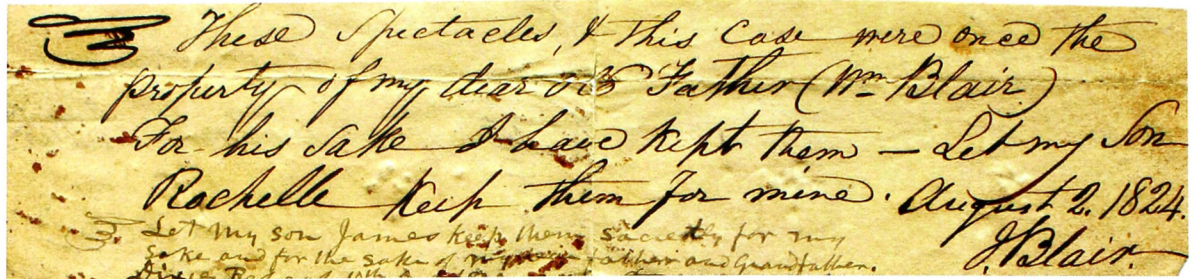 These Spectacles, & this Case were once the
property of my dear old Father (Wm Blair)
For his sake I have kept them – Let my Son
Rochelle keep them for mine. August 2. 1824.
J. Blair
Let my son James keep them sacredly for my
sake and for the sake of my father and Grandfather.